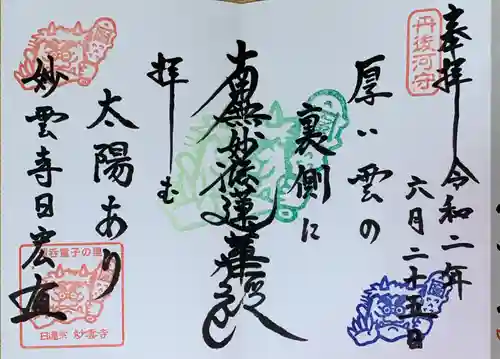 丹後河守
奉拝 令和二年
六月二十五日
厚い雲の
裏側に
南無妙法蓮華経
拝しむ
太陽あり
妙雲寺日宏
呑童子の里
日蓮宗 妙雲寺